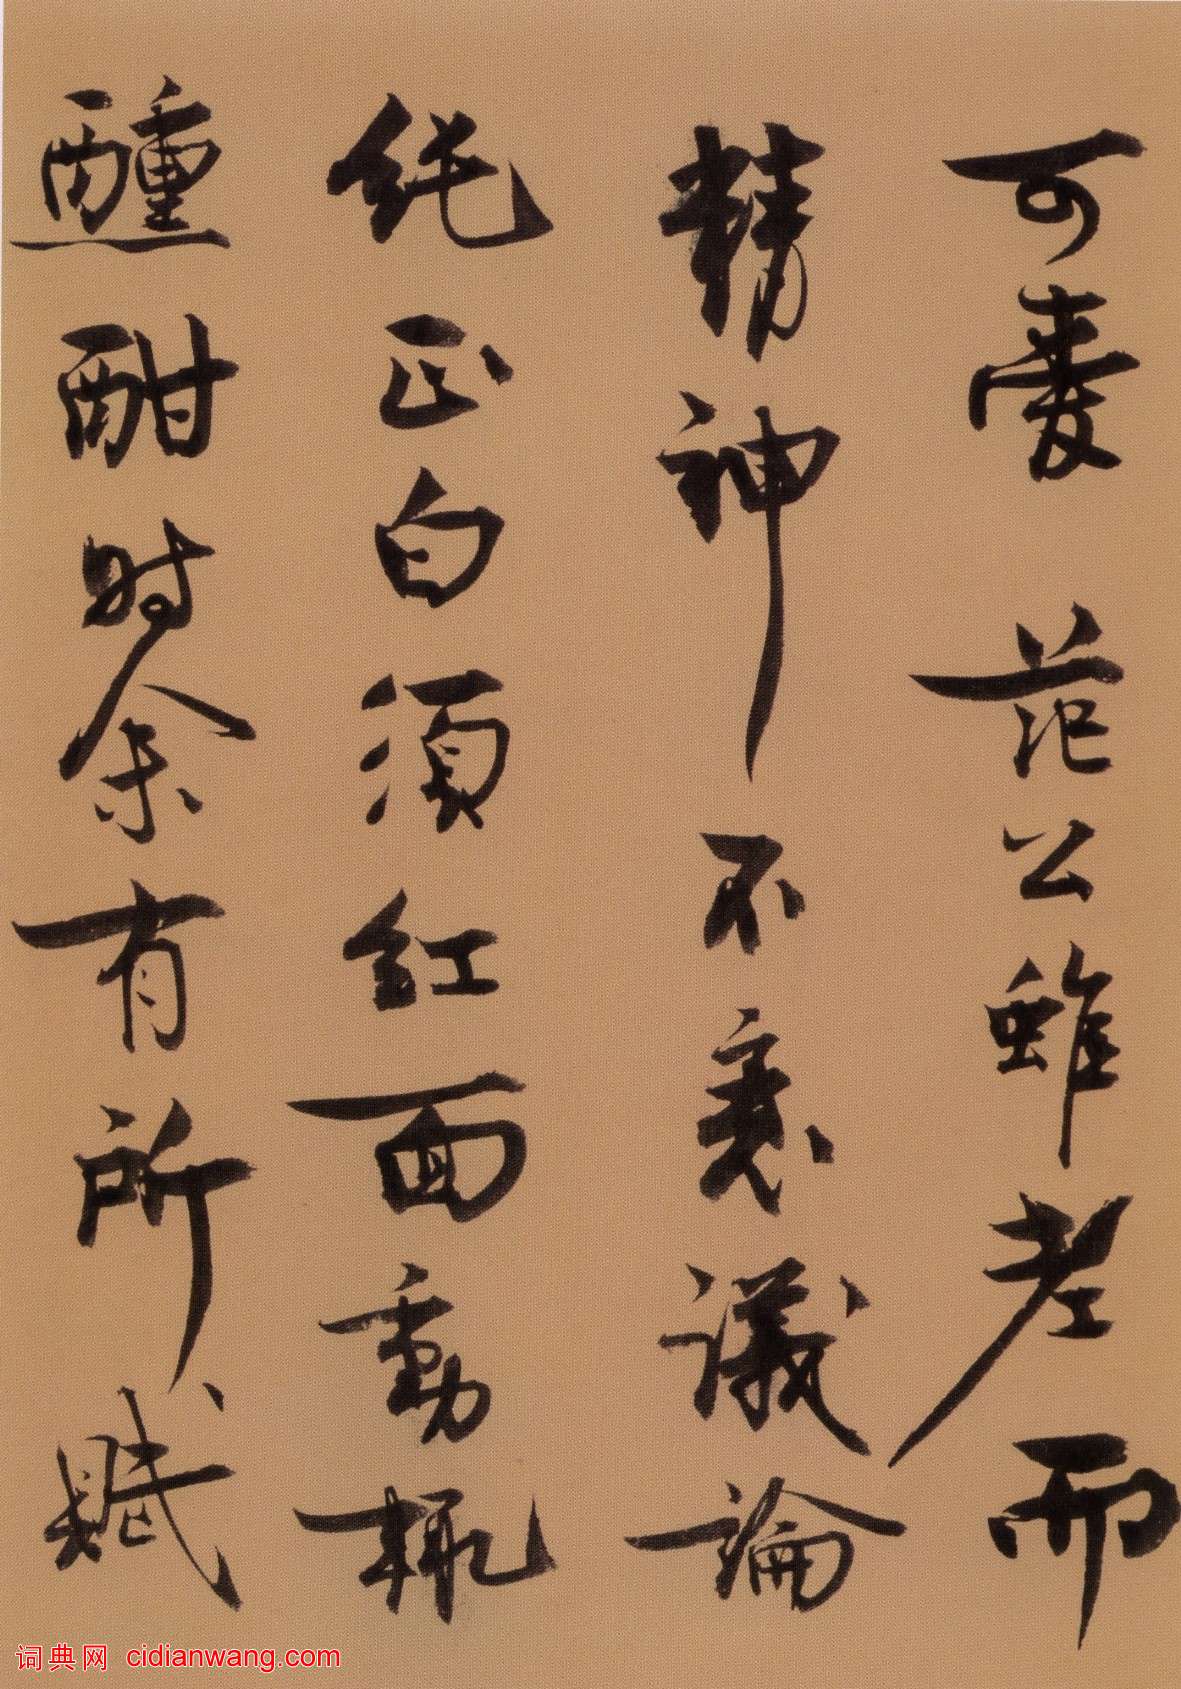 可爱 范公雖老而
精神不衰議論
純正白須紅面動輒
醺酣时余有所賦
词典网 cidianwang.com